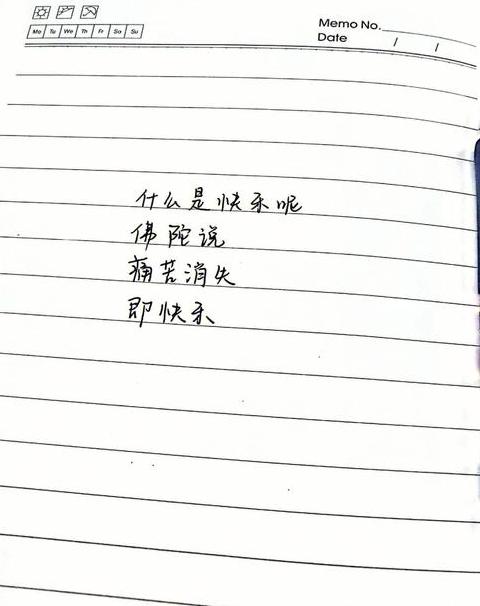 Memo No.
Mo Tu We Th Fr Sa Su
Date / /
什么是快乐呢
佛陀说
痛苦消失
即快乐